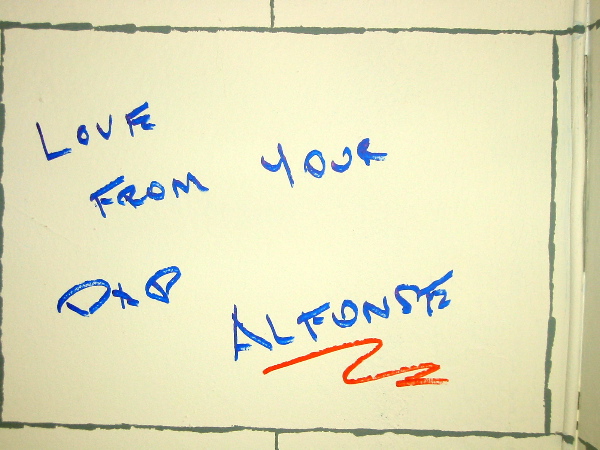 LOVE
FROM YOUR
DAD
ALFONSE